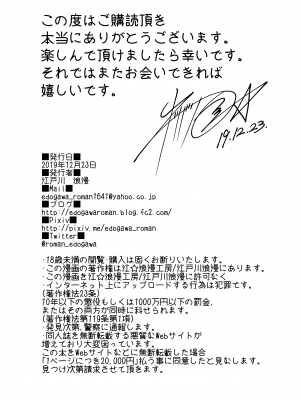 この度はご購読頂き
本当にありがとうございます。
楽しんで頂けましたら幸いです。
それではまたお会いできれば
嬉しいです。
19.12.23.
■発行日■
2019年12月23日
■発行者■
江戸川　浪漫
■Mail■
edogawa_roman1641@yahoo.co.jp
■ブログ■
http://edogawaroman.blog.fc2.com/
■Pixiv■
http://pixiv.me/edogawa-roman
■Twitter■
@roman_edogawa
・18歳未満の閲覧・購入は固くお断りいたします。
・この漫画の著作権は江☆浪漫工房/江戸川浪漫にあります。
・この漫画を江☆浪漫工房/江戸川浪漫に許可なく
インターネット上にアップロードする行為は犯罪です。
(著作権法23条)
10年以下の懲役もしくは1000万円以下の罰金、
またはその両方が同時に科せられます。
(著作権法第119条第1項)
・発見次第、警察に通報します。
・同人誌を無断転載する悪質なWebサイトが
増えており大変困っています。
この本をWebサイトなどに無断転載した場合
「1ページにつき20,000円」払う事に同意したと見なします。
見つけ次第請求させて頂きます。